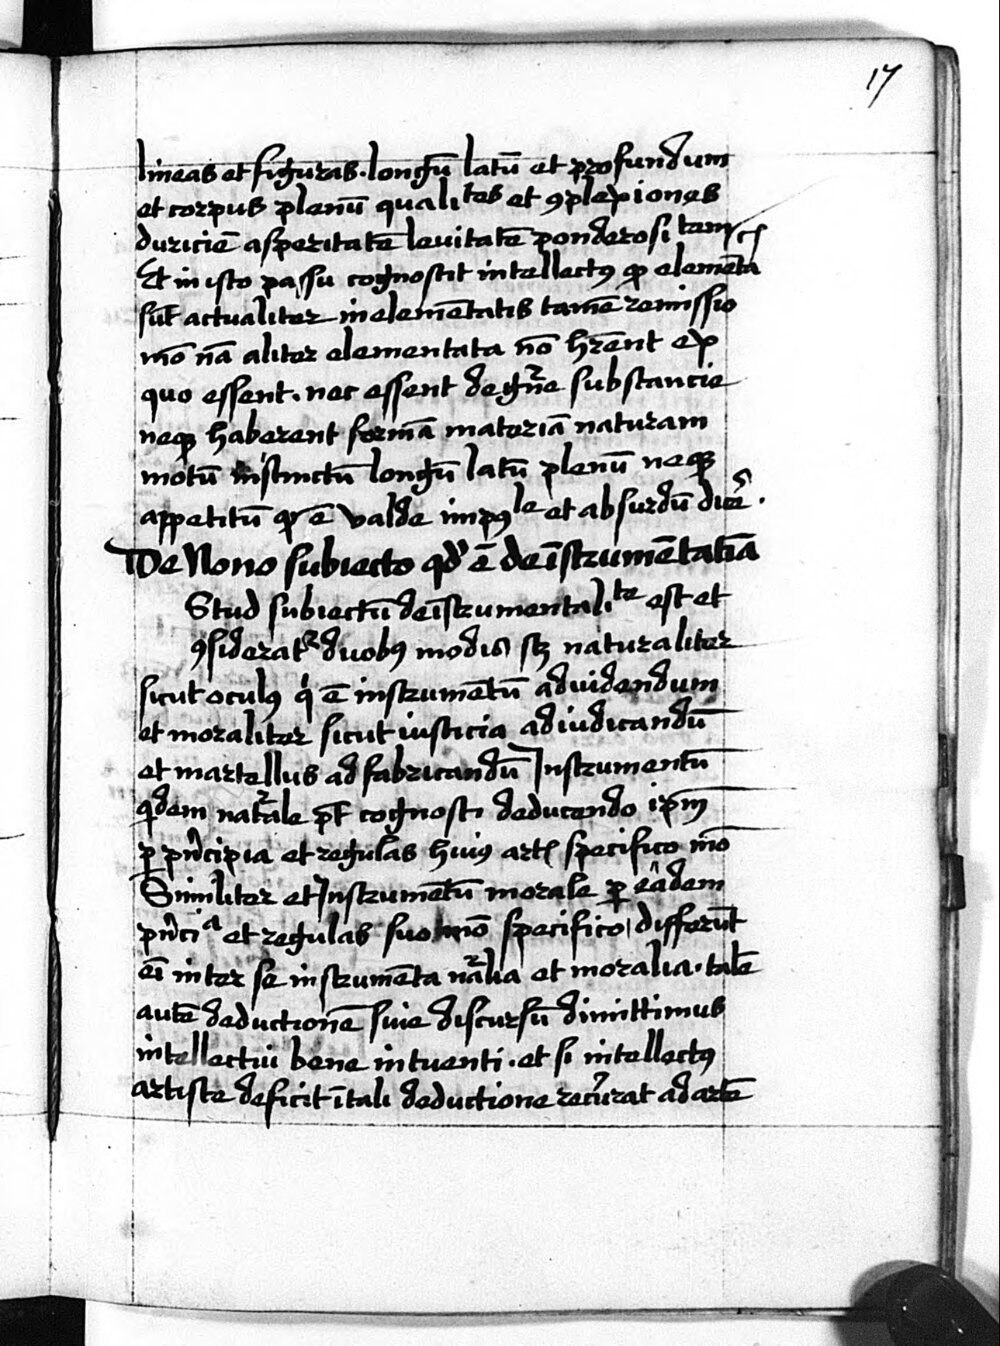 17
lineas et figuras. longū latū et profundum
et corpus plenū qualitᵗᵉˢ et ꝯplexiones
duriciē asperitatē levitatē ponderositatem ⁊cͭ
Et in isto passu cognoscit intellectꝰ ꝙ elemēta
sūt actualiter in elemētatis tamē remisso
mō nā aliter elementata nō hr̄ent ex
quo essent. nec essent de gn̄e substancie
neqꝫ haberent formā materiā naturam
motū instinctū longū latū plenū neqꝫ
appetitū qᵈ ē valde impoˡᵉ et absurdū dicē.
De Nono subiecto qᵈ ē de īstrumētatīa
Stud subiectū de īstrumentaliᵗᵉ est et
ꝯsiderat᷑ duobꝰ modis sꝫ naturaliter
sicut oculꝰ qⁱ ē instrumētū ad videndum
et moraliter sicut iusticia ad iudicandū
et martellus ad fabricandū Instrumentū
qͥdem nat᷑ale pͭ cognosci deducendo ip̄m
ꝑ pn̄cipia et regulas huiꝰ artꝭ specifico mō
Similiter et Instrumētū morale ꝑ eādem
pn̄ciᵃ et regulas suo mō specifico differūt
eī inter se instrumēta nāl᷑ia et moralia. talē
autē deductionē sive discursū dimittimus
intellectui bene intuenti. et si intellectꝰ
artiste deficit ī tali deductione recurrat ad artē